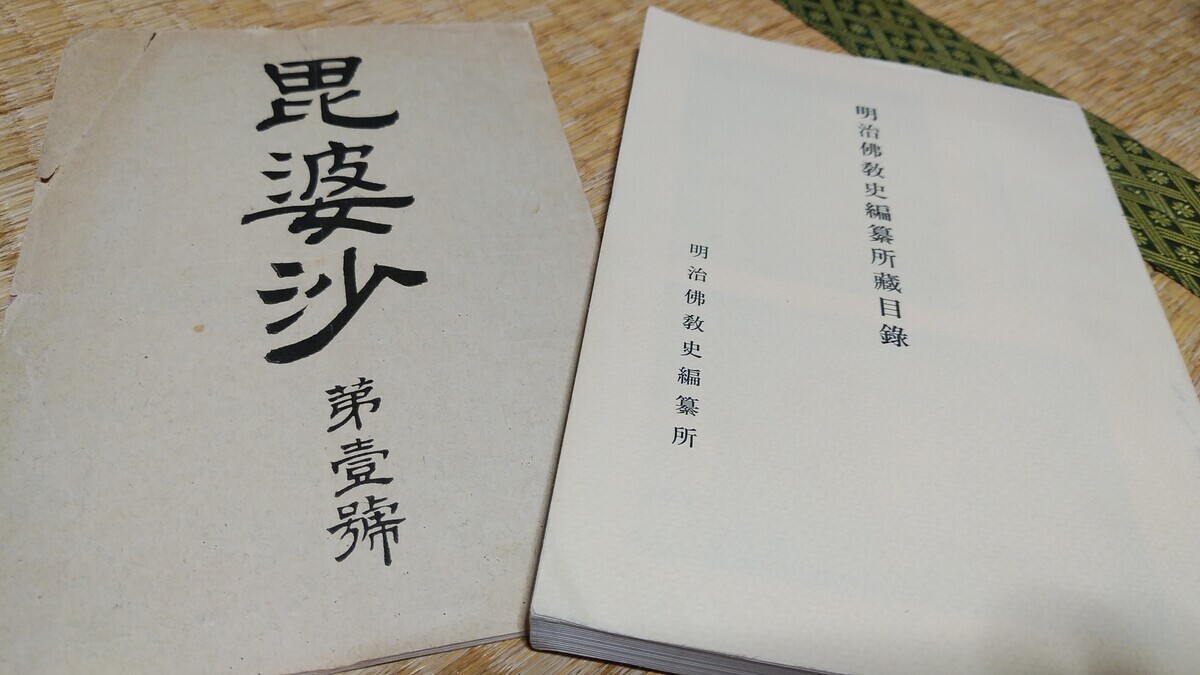 毘婆沙
第壹號
明治佛敎史編纂所藏目錄
明治佛敎史編纂所